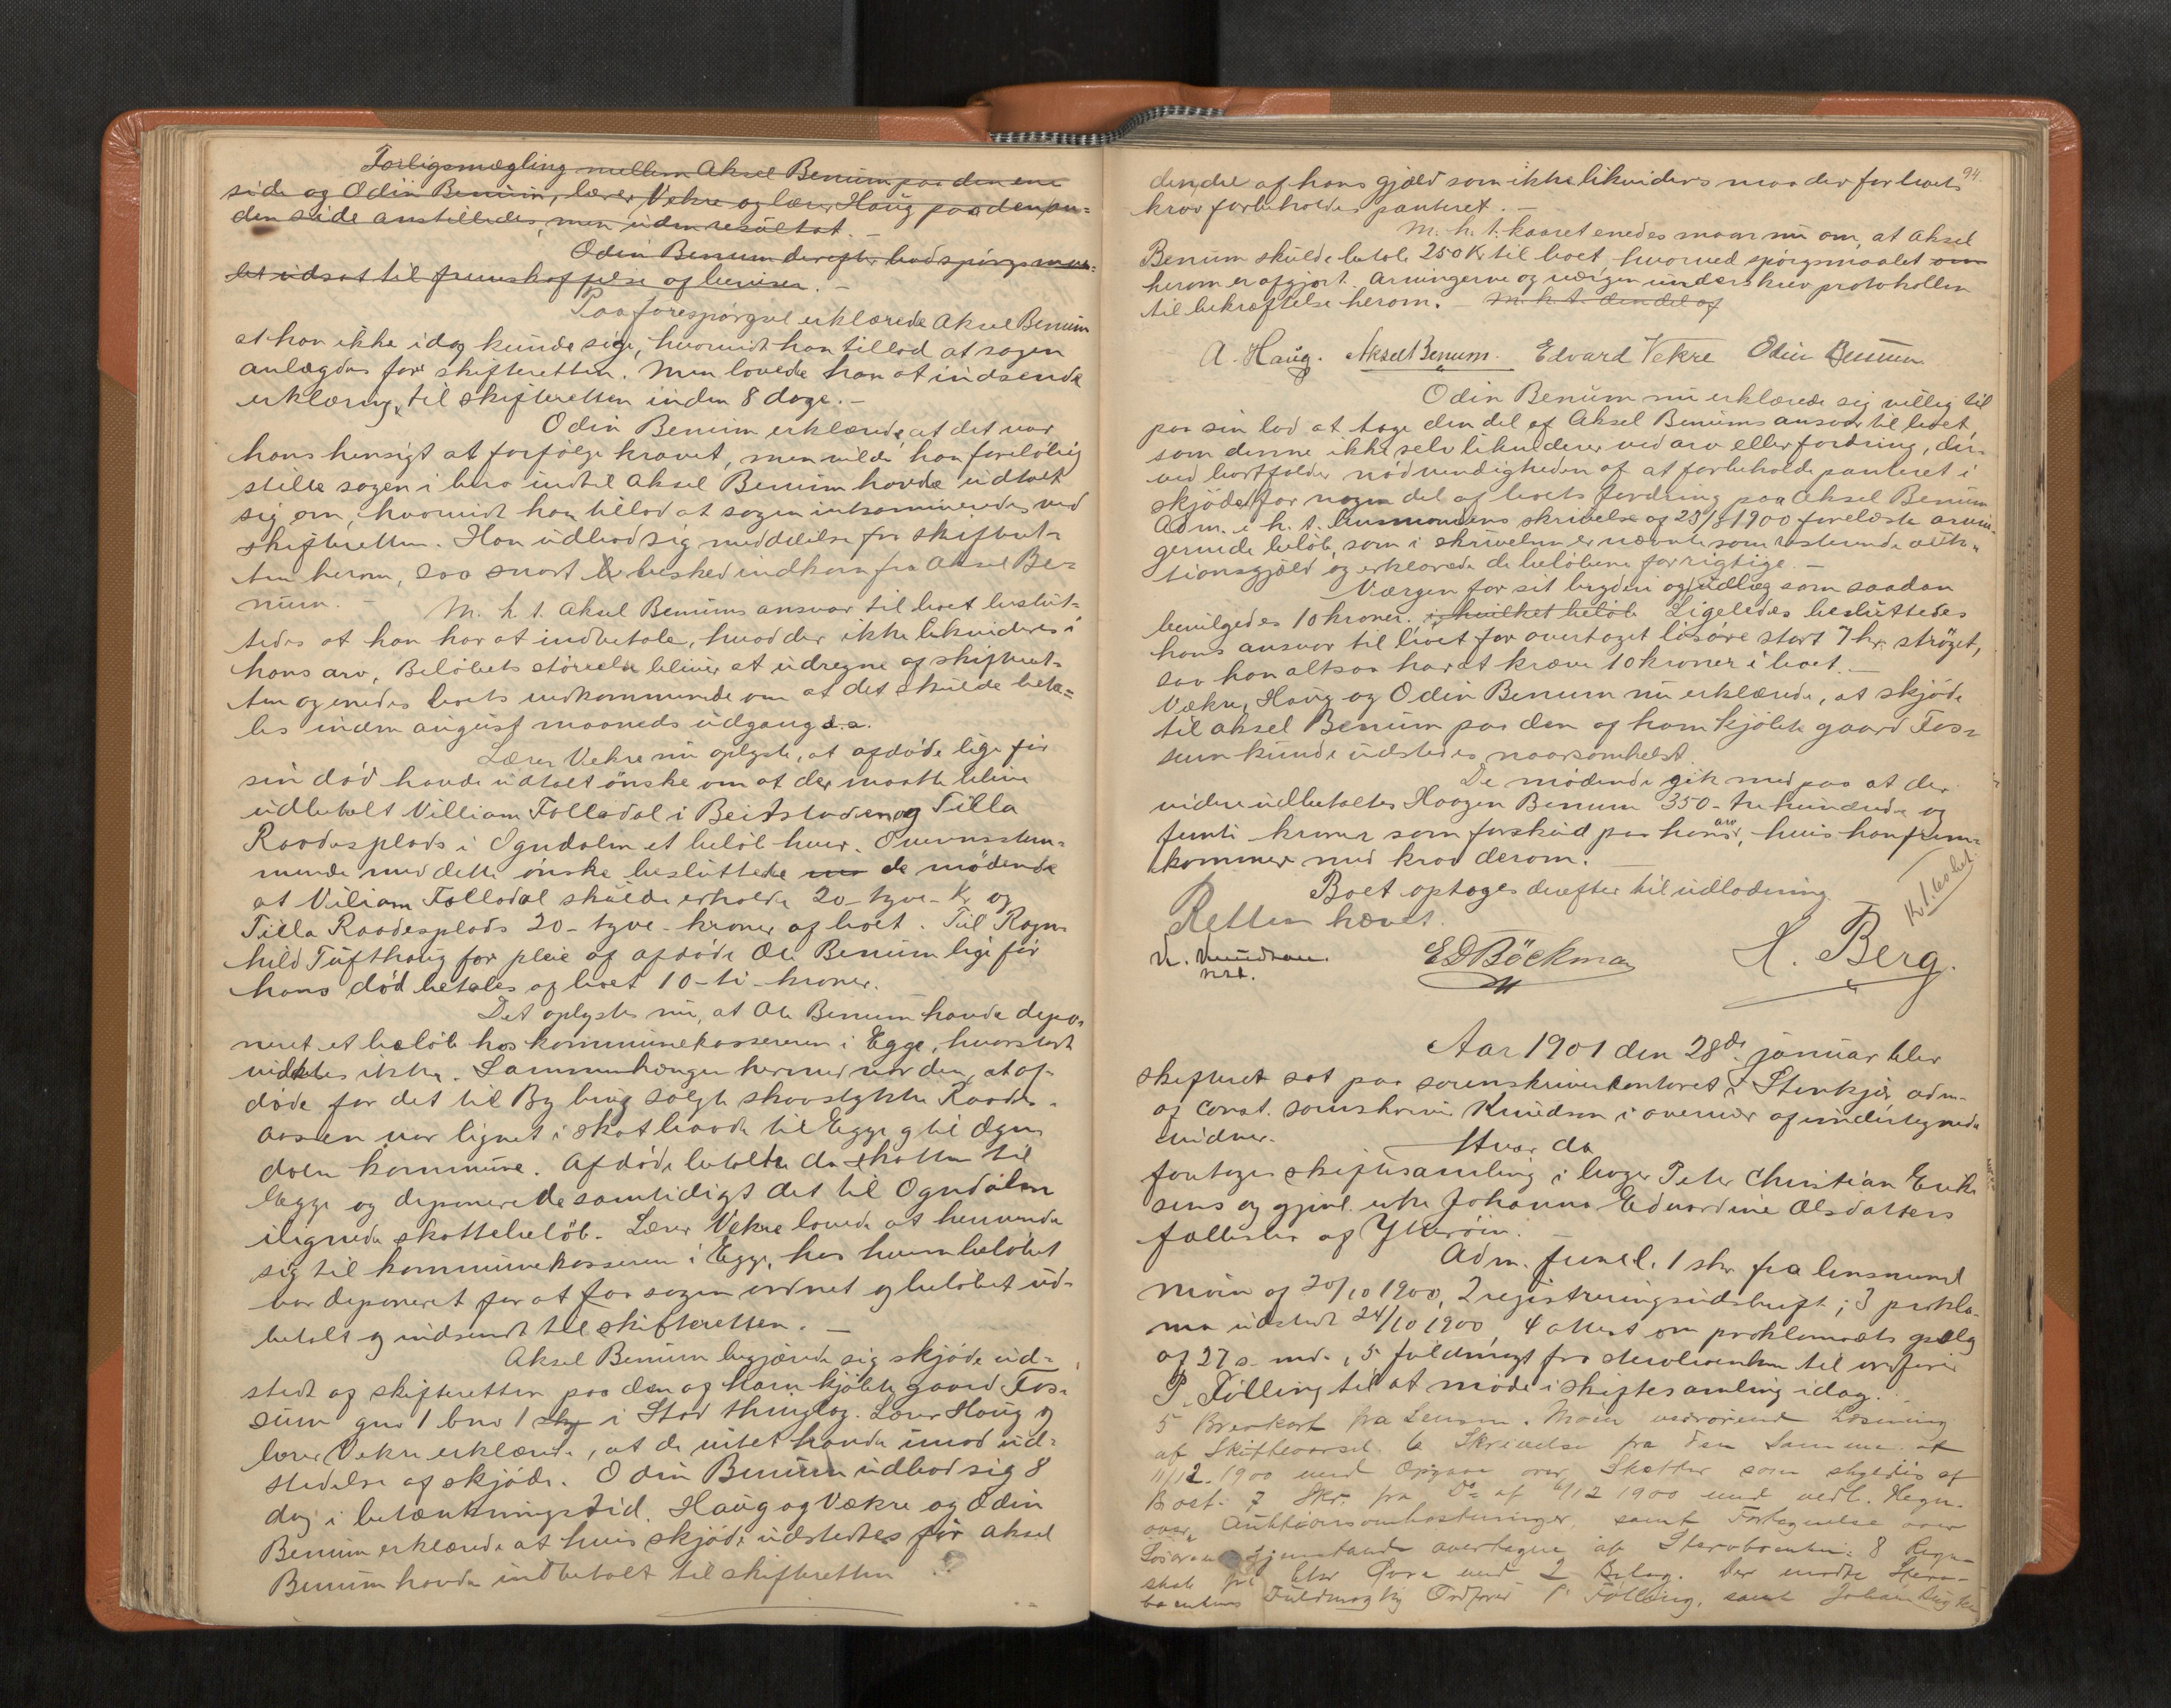 Forligsmægling mellem Aksel Benum paa den ene
side og Odin Benum, lærer Vekre og lærer Haug paa den an-
den side anstilledes, men uden resultat. –
Odin Benum derefter bad spørgsmaa-
let udsat til fremskaffelse af beviser. –
Paa forespørgsel erklærede Aksel Benum
at han ikke idag kunde sige, hvorvidt han tillod at sagen
anlægdes for skifteretten. Men lovede han at indsende
erklæring til skifteretten inden 8 dage. –
Odin Benum erklærede, at det var
hans hensigt at forfølge kravet, men vilde han foreløbig
stille sagen i bero indtil Aksel Benum havde udtalt
sig om, hvorvidt han tillod at sagen intammineredes ved
skifteretten. Han udbad sig meddelelse fra skifteret-
ten herom, saa snart besked indkom fra Aksel Be-
num. – M. h. t. Aksel Benums ansvar til boet beslut-
tedes at han har at indbetale, hvad der ikke likvideres i
hans arv, Beløbets størrelse bliver at udregne af skifteret-
ten og enedes boets vedkommende om at det skulde beta-
les inden august maaneds udgang d.a.
Lærer Vekre nu oplyste, at afdøde lige før
sin død havde udtalt ønske om at der maatte blive
udbetalt Villiam Folladal i Beitstaden og Tilla
Raadesplads i Ogndalen et beløb hver. Overensstem-
mende med dette ønske besluttede de mødende
at Viliam Folladal skulde erholde 20 – tyve – Kr og
Tilla Raadesplads 20 – tyve – kroner af boet. Til Ragn-
hild Tufthaug for pleie af afdøde Ole Benum lige før
hans død betales af boet 10 – ti – kroner.
Det oplystes nu, at Ole Benum havde depo-
neret et beløb hos kommunekassereren i Egge, hvorstort
vidstes ikke. Sammenhængen hermed var den, at af-
døde for det til By brug solgte skovstykke Raade-
aasen var lignet i skat baade til Egge og til Ogn-
dalen kommune. Afdøde betalte da skatten til
Egge og deponerede samtidigt det til Ogndalen
ilignede skattebeløb. Lærer Vekre lovede at henvende
sig til kommunekassereren i Egge, hos hvem beløbet
var deponeret for at faa sagen ordnet og beløbet ud-
betalt og indsendt til skifteretten. –
Aksel Benum begjærede sig skjøde ud-
stedt af skifteretten paa den af ham kjøbte gaard Fos-
sum gno 1 bno 1 i Stod thinglag. Lærer Haug og
lærer Vekre erklærede, at de intet havde imod ud-
stedelse af skjøde. Odin Benum udbad sig 8
dag i betænkningstid. Haug og Vækre og Odin
Benum erklærede at hvis skjøde udstedtes før Aksel
Benum havde indbetalt til skifteretten
94.
den del af hans gjæld som ikke likvideres maa der for boets
krav forbeholdes panteret. –
M. h. t. kaaret enedes man nu om, at Aksel
Benum skulde betale 250 Kr til boet, hvorved spørgsmaalet om
herom er afgjort. Arvingerne og værgen underskrev protokollen
til bekræftelse herom. – M. h. t. den del af
A. Haug. Aksel Benum. Edvard Vekre Odin Benum
Odin Benum nu erklærede sig villig til
paa sin lod at tage den del af Aksel Benums ansvar til boet,
som denne ikke selv likviderer ved arv eller fordring, der-
ved bortfalder nødvendigheden af at forbeholde panteret i
skjødet for nogen del af boets fordring paa Aksel Benum
Adm. i h. t. lensmandens skrivelse af 23/8 1900 forelæste arvin-
gerne de beløb, som i skrivelsen er nævnte som resterende auk-
tionsgjæld og erklærede de beløbene for rigtige. –
Værgen for sit bryderi og udlæg som saadan
bevilgedes 10 kroner. i hvilket beløb Ligeledes besluttedes
hans ansvar til boet for overtaget løsøre stort 7 kr. strøget,
saa han altsaa har at kræve 10 kroner i boet. –
Vækre, Haug og Odin Benum nu erklærede, at skjøde
til Aksel Benum paa den af ham kjøbte gaard Fos-
sum kunde udstedes naarsomhelst.
De mødende gik med paa at der
videre udbetaltes Haagen Benum 350 – tre hundrede og
femti kroner som forskud paa hans arv, hvis han frem-
kommer med krav derom.
Boet optages derefter til udlodning.
Retten hævet.
K. Knudsen. E D Böckman H. Berg.
Aar 1901 den 28de januar blev
skifteret sat paa sorenskriverkontoret i Stenkjær adm.
af const. sorenskriver Knudsen i overvær af undertegnede
vidner.
Hvor da
foretoges skiftesamling i boet Peter Christian Erik-
sens og gjenl. enke Johanna Edvardine Olsdatters
fællesbo af Ytterøen.
Adm. freml. 1 skr. fra lensmand
Moin af 20/10 1900, 2 registreringsudskrift, 3 prokla-
ma udstedt 24/10 1900, 4 attest om proklamaets oplæg
af 27 s. md., 5 fuldmagt fra sterboenken til ordfører
P. Følling til at møde i skiftesamling idag.
5 Brevkort fra Lensm. Moin vedrørende Læsning
af Skiftevarsel. 6 Skrivelse fra den Samme af
11/12 1900 med Opgave over Skatter som skyldes af
Boet. 7 Skr. fra Do af 6/12 1900 med vedl. Regn.
over Auktionsomkostninger samt Fortegnelse over
Løsøregjenstande overtagne af Sterboenken. 8 Regn-
skab fra med 2 Bilag. Der mødte Stervboenkens Fuldmægtig Ordfører P. Følling, samt Johan